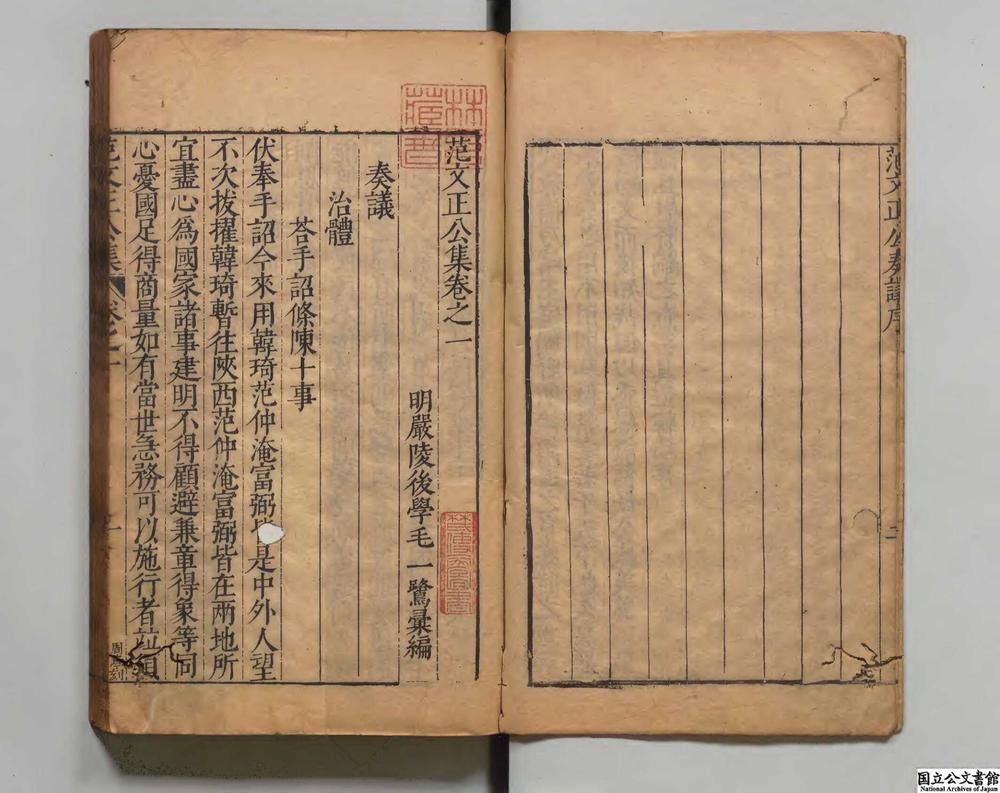 范文正公奏議序
二
范文正公集卷之一
明嚴陵後學毛一鷺彙編
奏議
治體
荅手詔條陳十事
伏奉手詔今來用韓琦范仲淹富弼皆是中外人望
不次拔擢韓琦暫往陝西范仲淹富弼皆在兩地所
宜盡心爲國家諸事建明不得顧避兼章得象等同
心憂國足得商量如有當世急務可以施行者並須
范文正公集
卷之一
一
国立公文書館
National Archives of Japan